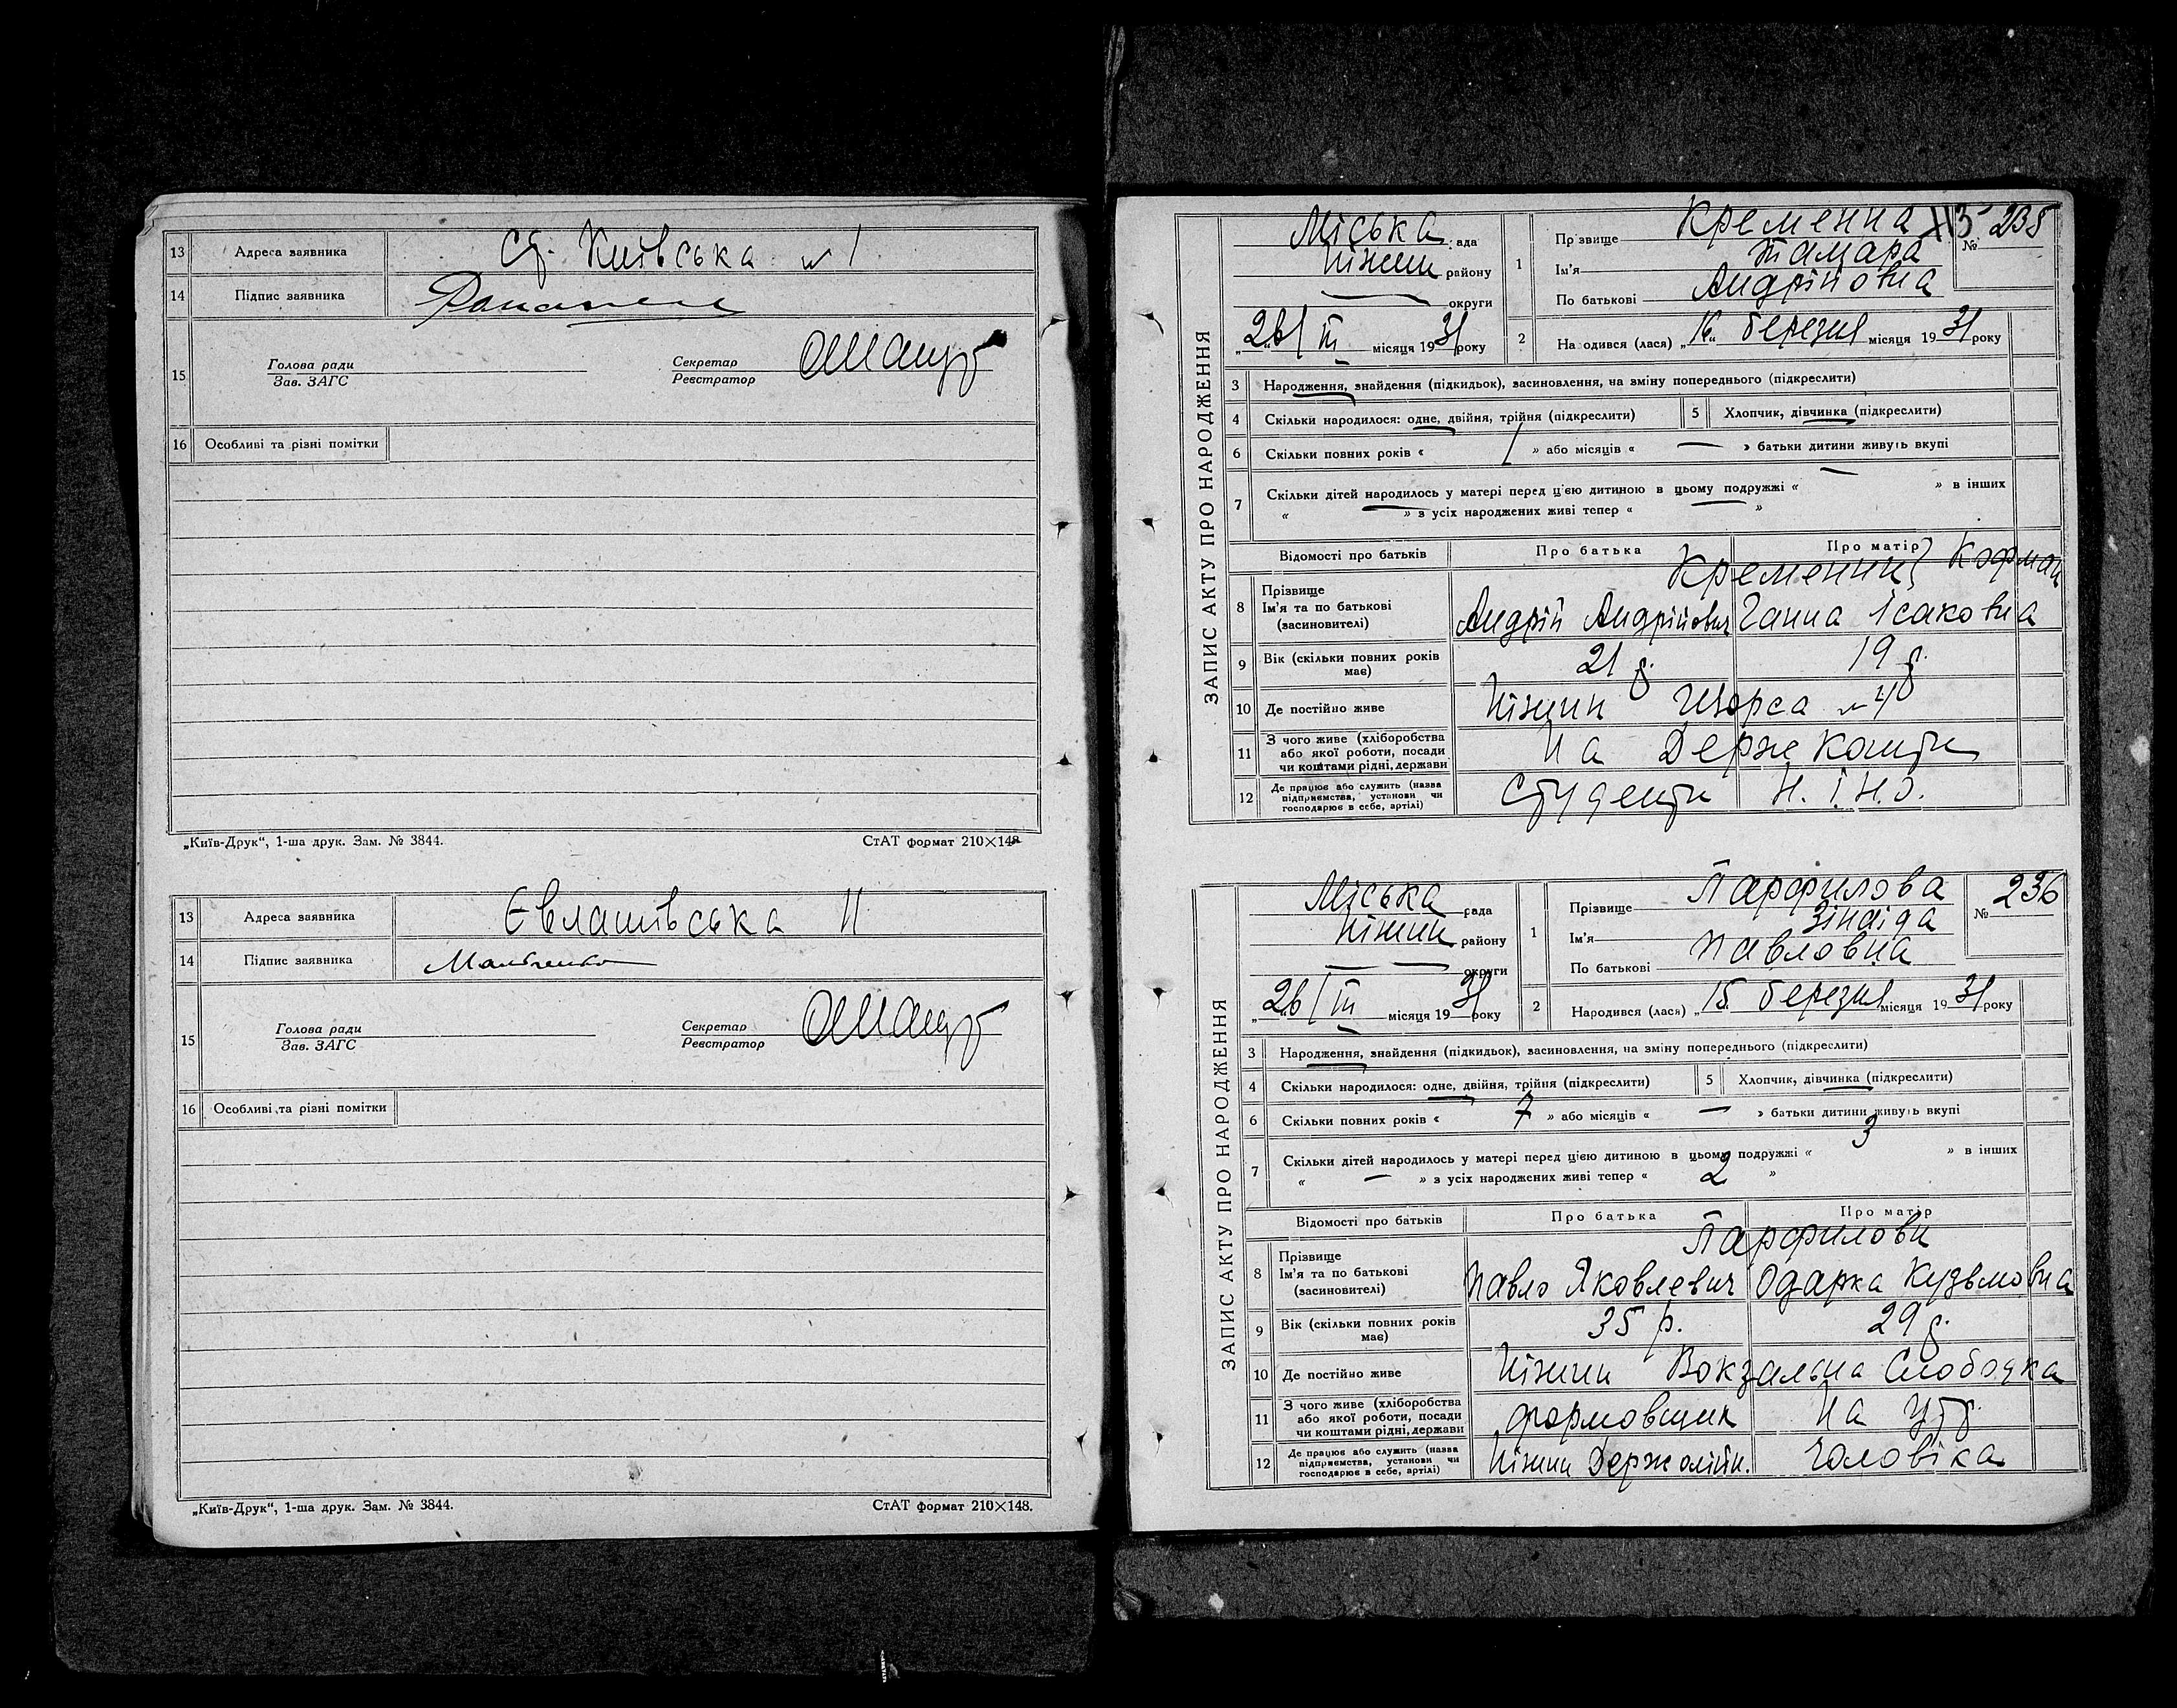 13 Адреса заявника Київська № 1
14 Підпис заявника
15 Голова ради
Зав. ЗАГС
Секретар
Реєстратор
16 Особливі та різні помітки
„Київ-Друк“, 1-ша друк. Зам. № 3844. СтАТ формат 210×148.
13 Адреса заявника Євлашівська 11
14 Підпис заявника
15 Голова ради
Зав. ЗАГС
Секретар
Реєстратор
16 Особливі та різні помітки
„Київ-Друк“, 1-ша друк. Зам. № 3844. СтАТ формат 210×148.
ЗАПИС АКТУ ПРО НАРОДЖЕННЯ
Міська рада
Ніжин району
— округи
„26/III місяця 1931 року
1 Прізвище Кременна
Ім'я Тамара
По батькові Андріївна
№ 235
2 Народився (лася) „16“ березня місяця 1931 року
3 Народження, знайдення (підкидьок), засиновлення, на зміну попереднього (підкреслити)
4 Скільки народилося: одне, двійня, трійня (підкреслити) 5 Хлопчик, дівчинка (підкреслити)
6 Скільки повних років « 1 » або місяців « — » батьки дитини живуть вкупі
7 Скільки дітей народилось у матері перед цією дитиною в цьому подружжі « — » в інших
« — » з усіх народжених живі тепер « — »
Відомості про батьків Про батька Про матір
8 Прізвище
Ім'я та по батькові
(засиновителі)
Кременний Кофман
Андрій Андрійович Ганна Ісаковна
9 Вік (скільки повних років має) 21 р. 19 р.
10 Де постійно живе Ніжин Щорса №
11 З чого живе (хліборобства
або якої роботи, посади
чи коштами рідні, держави
На Держ Кошти
12 Де працює або служить (назва
підприємства, установи чи
господарює в себе, артілі)
Студенти Н.І.Н.О.
ЗАПИС АКТУ ПРО НАРОДЖЕННЯ
Міська рада
Ніжин району
— — округи
„26/III місяця 1931 року
1 Прізвище Парфилова
Ім'я Зінаіда
По батькові Павловна
№ 236
2 Народився (лася) „15“ березня місяця 1931 року
3 Народження, знайдення (підкидьок), засиновлення, на зміну попереднього (підкреслити)
4 Скільки народилося: одне, двійня, трійня (підкреслити) 5 Хлопчик, дівчинка (підкреслити)
6 Скільки повних років « 7 » або місяців « — » батьки дитини живуть вкупі
7 Скільки дітей народилось у матері перед цією дитиною в цьому подружжі « 3 » в інших
« — » з усіх народжених живі тепер « 2 »
Відомості про батьків Про батька Про матір
8 Прізвище
Ім'я та по батькові
(засиновителі)
Парфилови
Павло Яковлевич Одарка Кузьмовна
9 Вік (скільки повних років має) 35 р. 29 р.
10 Де постійно живе Ніжин Вокзальна Слободка
11 З чого живе (хліборобства
або якої роботи, посади
чи коштами рідні, держави
формовщик На утр.
12 Де працює або служить (назва
підприємства, установи чи
господарює в себе, артілі)
Ніжин чоловіка